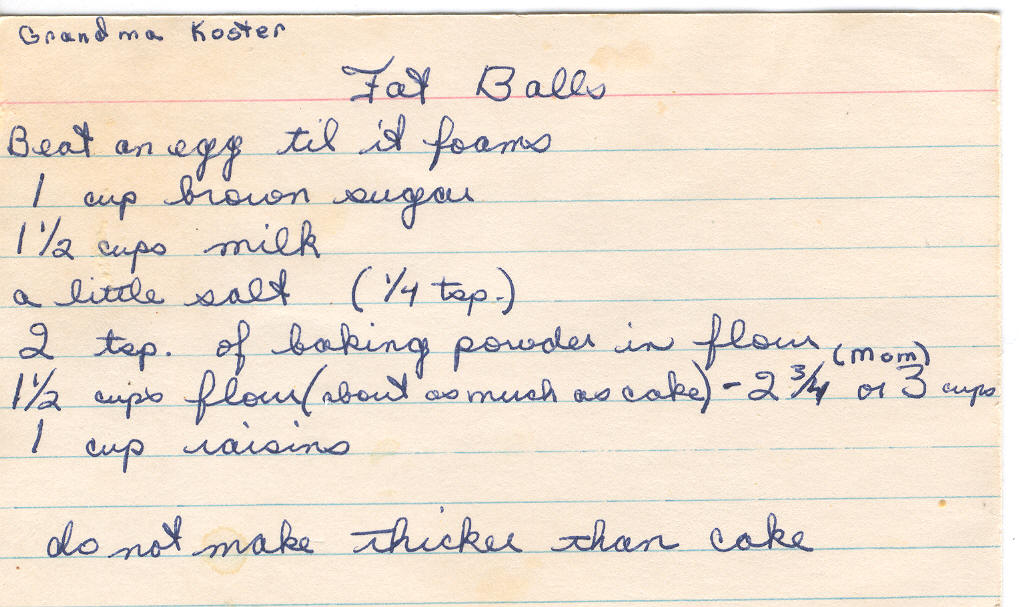 Grandma Koster
Fat Balls
Beat an egg til it foams
1 cup brown sugar
1 1/2 cups milk
a little salt (1/4 tsp.)
2 tsp. of baking powder in flour
(Mom)
1 1/2 cups flour (about as much as cake) - 2 3/4 or 3 cups
1 cup raisins
do not make thicker than cake